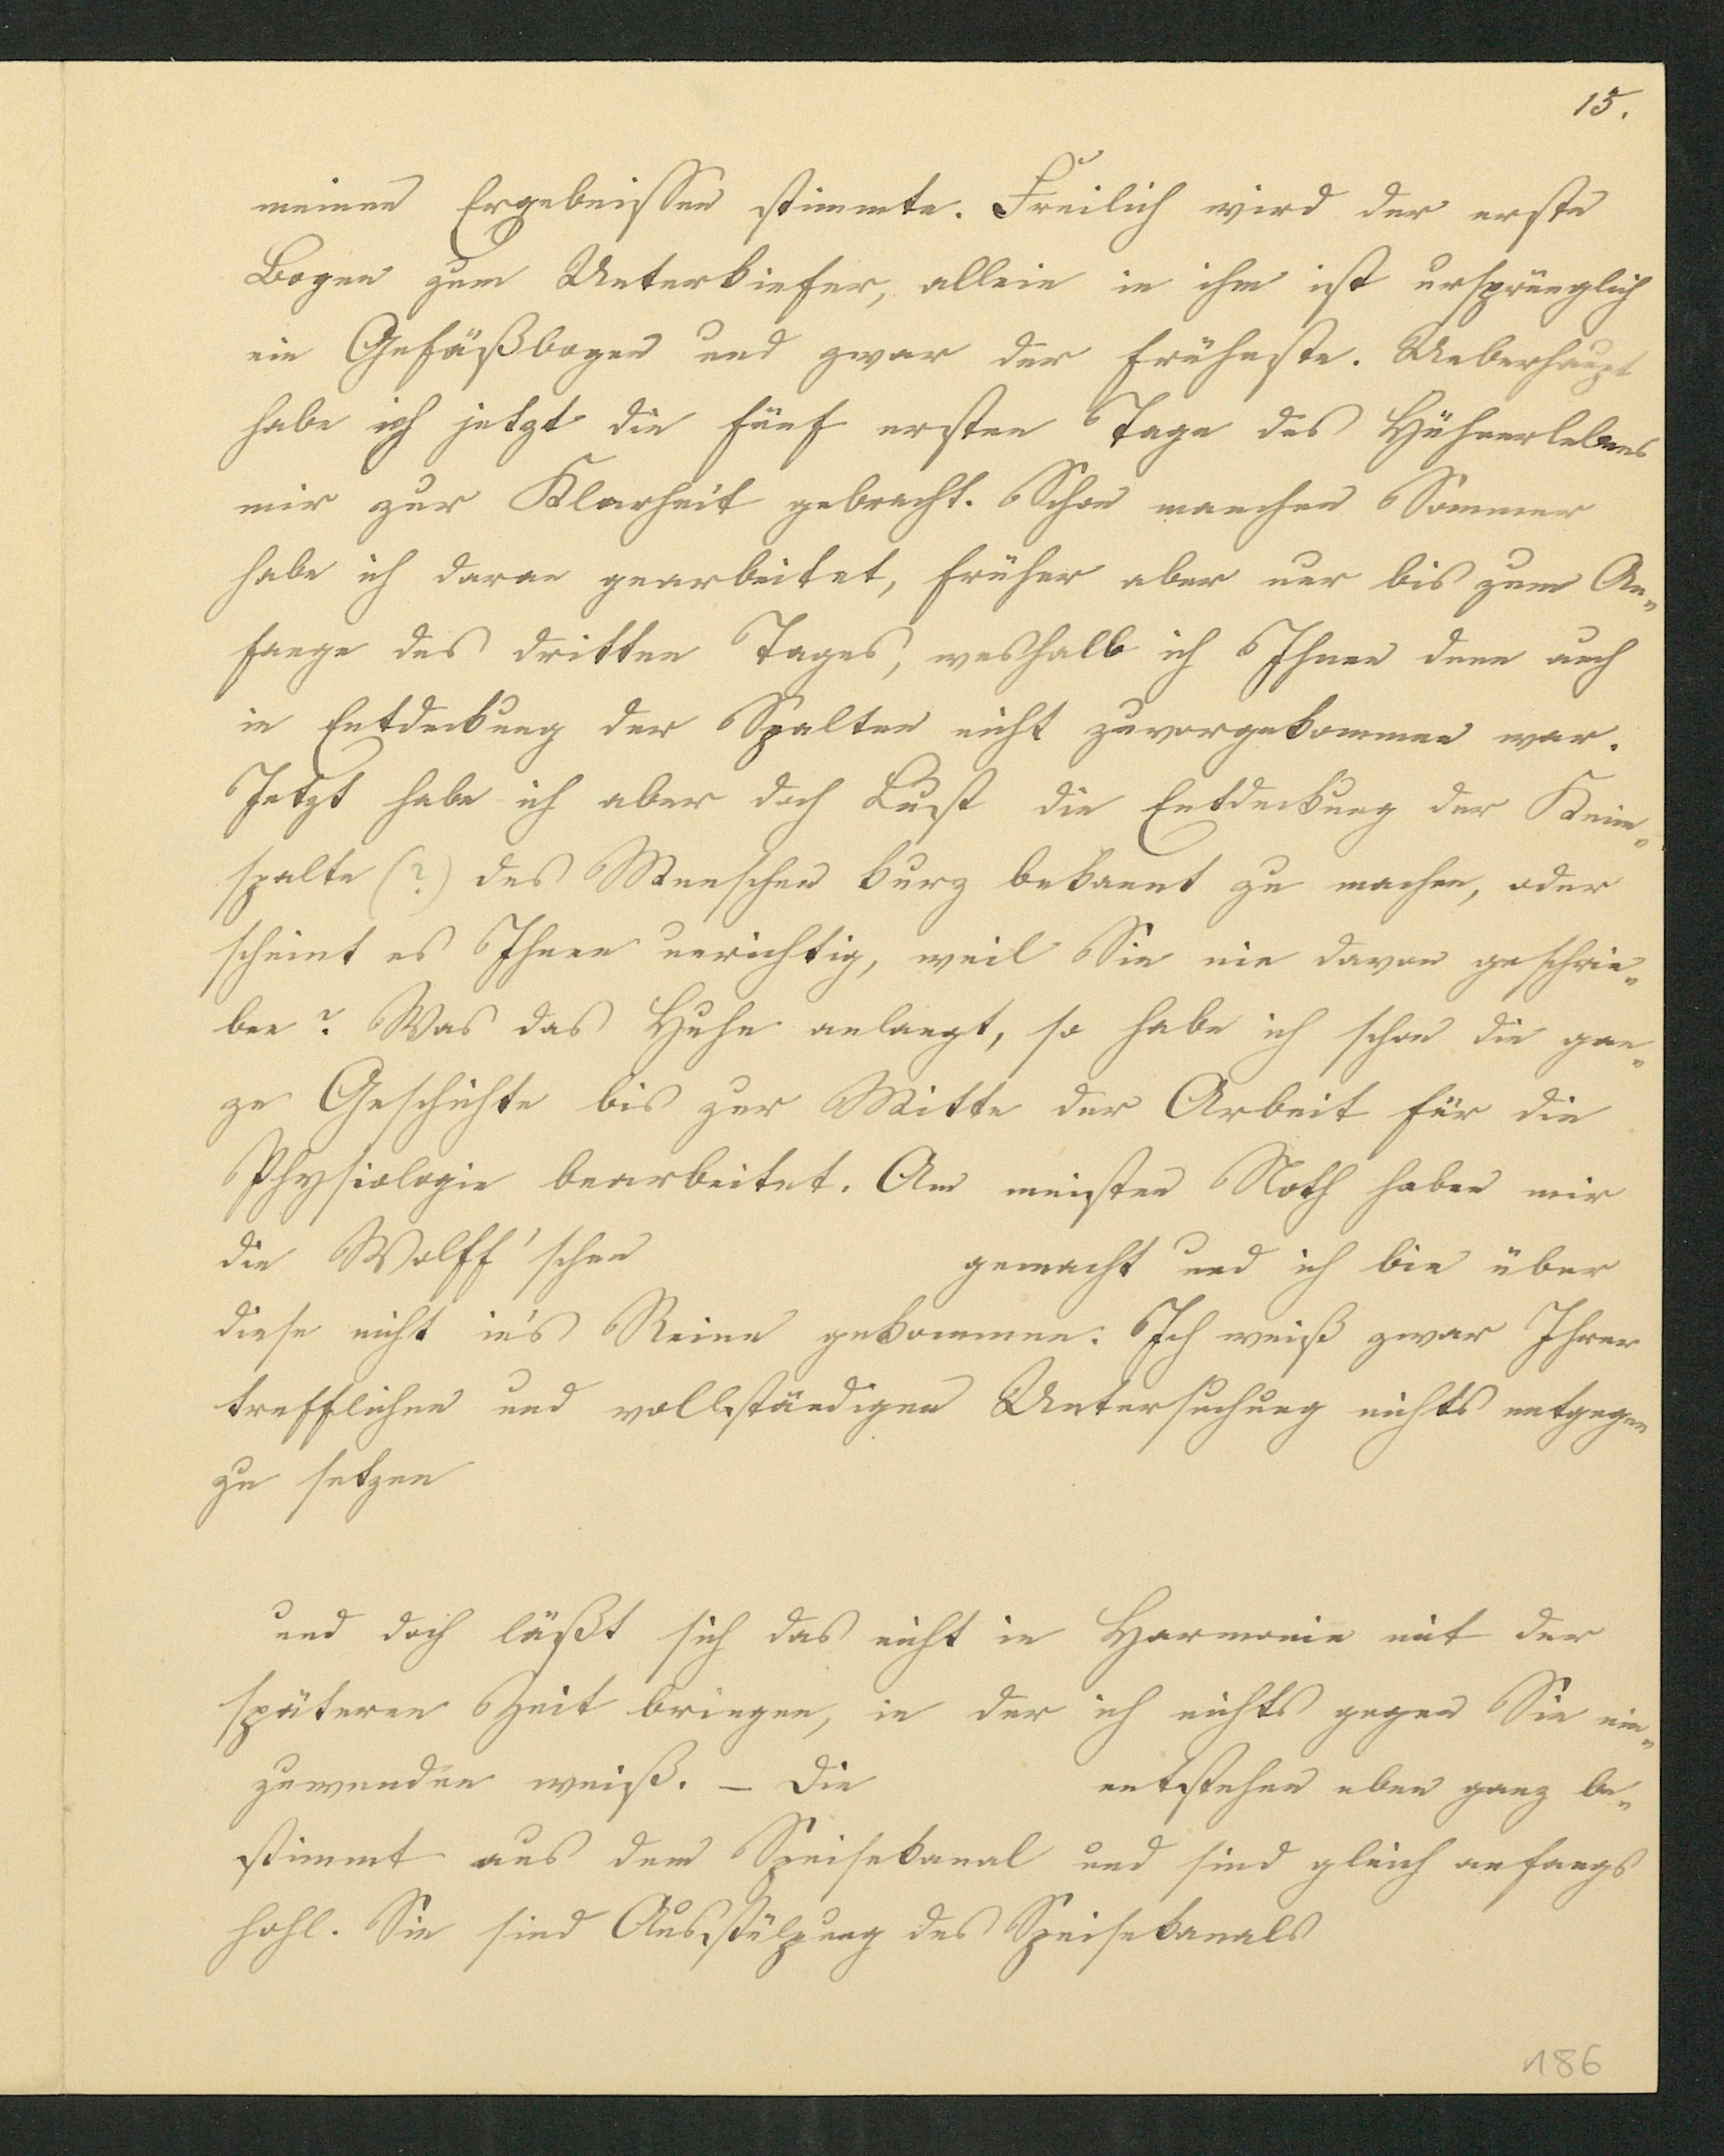 15.
meinen Ergebnissen stimmte. Freilich wird der erste
Bogen zum Unterkiefer, allein in ihm ist ursprünglich
ein Gefäßbogen und zwar der früheste. Ueberhaupt
habe ich jetzt die fünf ersten Tage des Hühnerlebens
mir zur Klarheit gebracht. Schon manchen Sommer
habe ich daran gearbeitet, früher aber nur bis zum An-
fange des dritten Tages, weshalb ich Ihnen denn auch
in Entdeckung der Spalten nicht zuvorgekommen war.
Jetzt habe ich aber doch Lust die Entdeckung der Keim-
spalte (?) des Menschen kurz bekannt zu machen, oder
scheint es Ihnen unrichtig, weil Sie nie davon geschrie-
ben? Was das Huhn anlangt, so habe ich schon die gan-
ze Geschichte bis zur Mitte der Arbeit für die
Physiologie bearbeitet. Am meisten Noth haben mir
die Wolff'schen gemacht und ich bin über
diese nicht in's Reine gekommen. Ich weiß zwar Ihrer
trefflichen und vollständigen Untersuchung nichts entgegen
zu setzen
und doch läßt sich das nicht in Harmonie mit der
späteren Zeit bringen, in der ich nichts gegen Sie ein-
zuwenden weiß. – Die entstehen eben ganz be-
stimmt aus dem Speisekanal und sind gleich anfangs
hohl. Sie sind Ausstülpung des Speisekanals
186